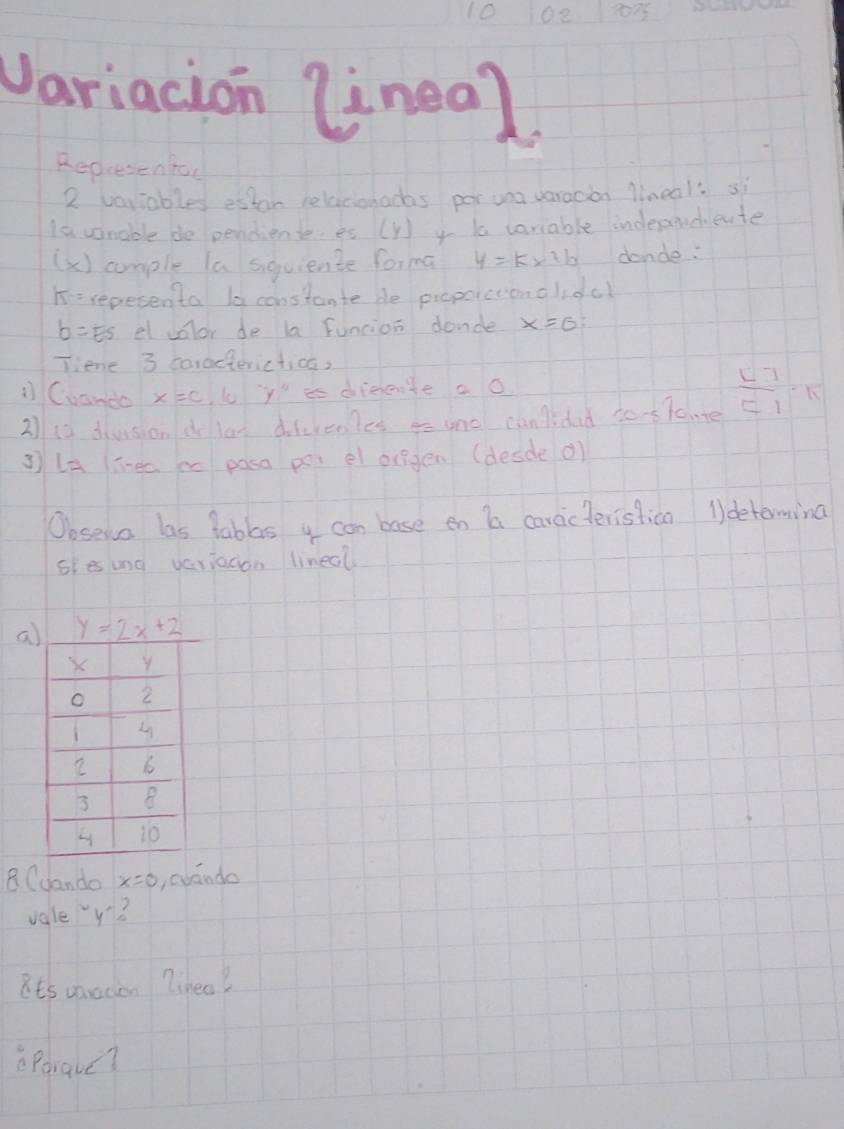 10 02 2025 SCHOOL
Variación lineal
Representac
2 variables estan relacionadas por una varacion lineal: si
la variable de pendiente es (y) y la variable independiente
(x) comple la siguiente forma y=kx+b donde:
K=representa la constante de proporcionalidad
b=Es el valor de la función donde x=0:
Tiene 3 caracterictica,
1) Cuando x=0, la "y" es diferente a 0
2) la division de las diferentes es una cantidad constante
3) La linea no pasa por el origen (desde 0)
Observa las tablas y con base en la carácteristica 1) determina
si es una variacion lineal
a) y=2x+2
x y
0 2
1 4
2 6
3 8
4 10
Cuando x=0, cuándo
vale "y"?
Es varacion lineal?
¿Porque?